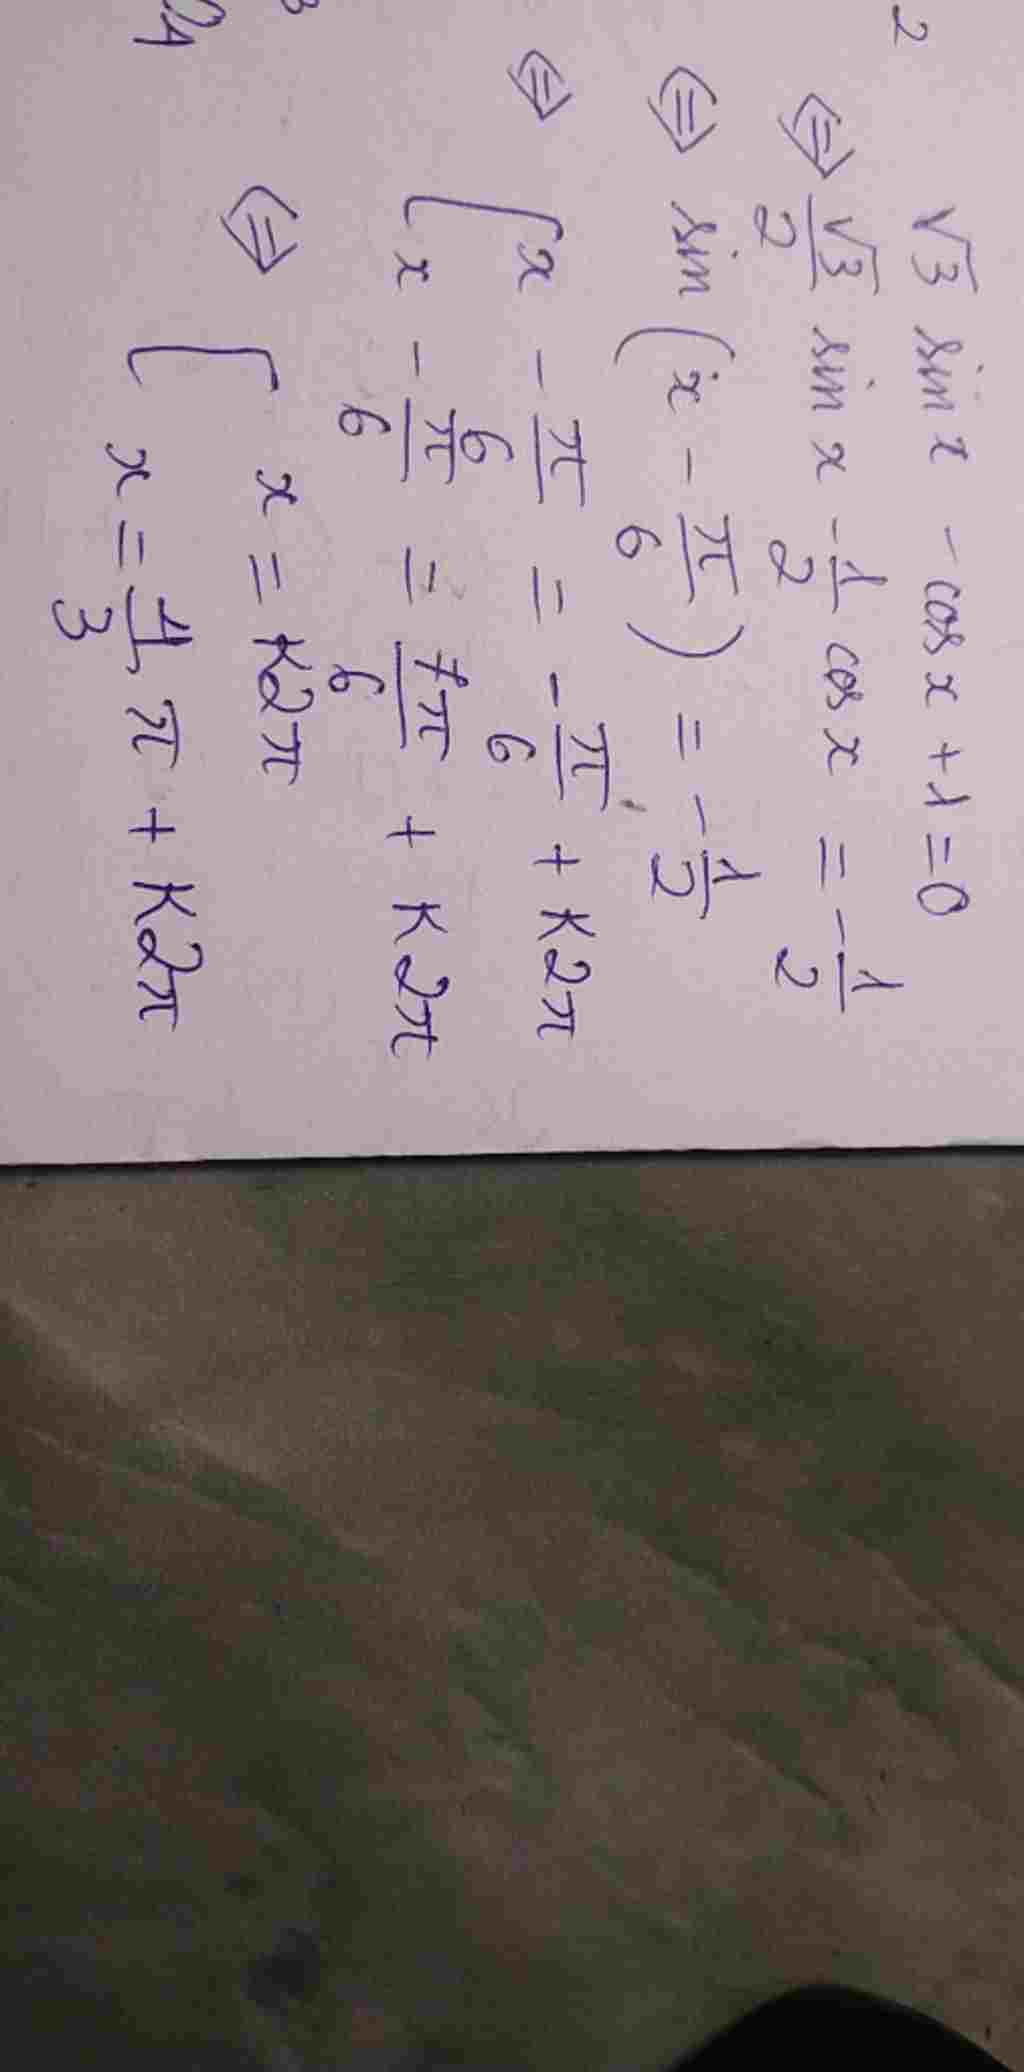 2
√3 sin x - cos x + 1 = 0
⇔ √3/2 sin x - 1/2 cos x = -1/2
⇔ sin (x - π/6) = -1/2
⇔ [ x - π/6 = -π/6 + K2π
x - π/6 = 7π/6 + K2π
⇔ [ x = K2π
x = 4/3 π + K2π